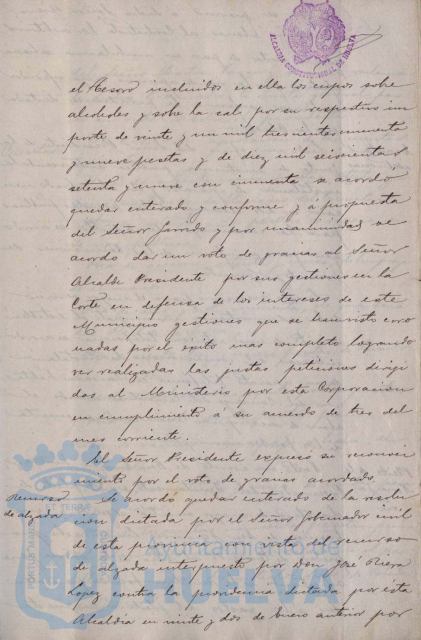 ALCALDIA CONSTITUCIONAL DE HUELVA
el Tesoro incluidos en ella los cupos sobre
alcoholes y sobre la sal, por su respectivo im
porte de veinte y un mil trescientas cincuenta
y nueve pesetas y de diez mil seiscientas
setenta y nueve con cincuenta se acordó
quedar enterado y conforme y á propuesta
del Señor Garrido y por unanimidad se
acordo dar un voto de gracias al Señor
Alcalde Presidente por sus gestiones en la
Corte en defensa de los intereses de este
Municipio gestiones que se han visto coro
nadas por el éxito mas completo logrando
ver realizadas las justas peticiones dirigi
das al Ministerio por esta Corporacion
en cumplimiento á su acuerdo de tres del
mes corriente.
El Señor Presidente expresó su reconoci
miento por el voto de gracias acordado.
Recurso
de alzada
Se acordó quedar enterado de la resolu
cion dictada por el Señor Gobernador civil
de esta provincia con vista del recurso
de alzada interpuesto por Don José Riera
Lopez contra la providencia dictada por esta
Alcaldia en veinte y dos de Enero anterior por
Ayuntamiento de
HUELVA